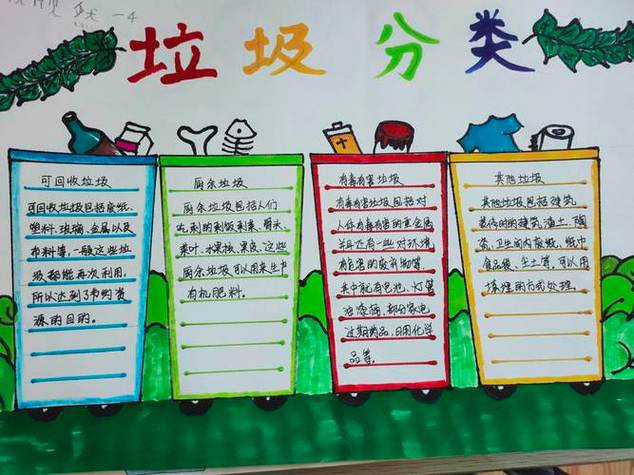 一4
垃圾分类
可回收垃圾
可回收垃圾包括废纸、
塑料、玻璃、金属以及
布料等,一般这些垃
圾都能再次利用,
所以达到了节约资
源的目的。
厨余垃圾
厨余垃圾包括人们
吃剩的剩饭剩菜、骨头
菜叶、水果核、果皮、这些
厨余垃圾可以用来生中
有机肥料。
有毒有害垃圾
有毒有害垃圾包括对
人体有毒有害的重金属
并且还有一些对环境
有危害的废弃物等
其中就有电池、灯管
油漆桶、部分家电
过期药品、日用化学
品等。
其他垃圾
其他垃圾包括建筑
装修时的建筑渣土、陶
瓷、卫生间内废纸、纸巾
食品袋、尘土等,可以用
填埋的方式处理